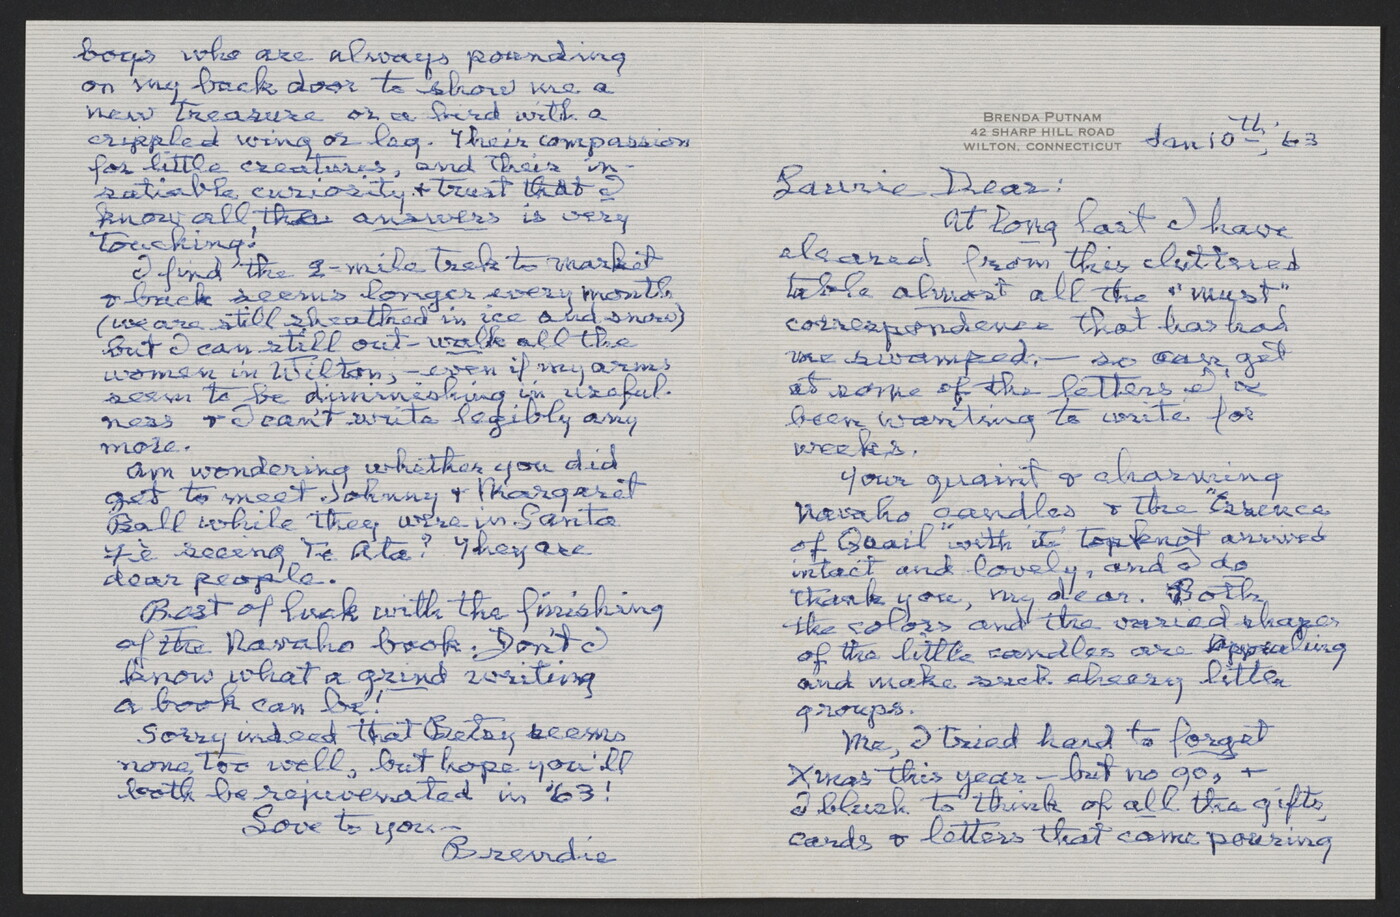 BRENDA PUTNAM
42 SHARP HILL ROAD
WILTON, CONNECTICUT
Jan 10th, '63
Laurie Dear:
At long last I have
cleared from this cluttered
table almost all the "must"
correspondence that has had
me swamped, — so can get
at some of the letters I've
been wanting to write for
weeks.
Your quaint & charming
Navaho candles & the "Essence
of Quail" with its topknot arrived
intact and lovely, and I do
thank you, my dear. Both
the colors and the varied shapes
of the little candles are appealing
and make such cheery little
groups.
Me, I tried hard to forget
Xmas this year — but no go, +
I blush to think of all the gifts,
cards & letters that came pouring
boys who are always pounding
on my back door to show me a
new treasure or a bird with a
crippled wing or leg. Their compassion
for little creatures, and their in-
satiable curiosity + trust that I
know all the answers is very
touching!
I find the 2-mile trek to market
& back seems longer every month
(we are still sheathed in ice and snow)
but I can still out-walk all the
women in Wilton, — even if my arms
seem to be diminishing in useful-
ness & I can't write legibly any
more.
Am wondering whether you did
get to meet Johnny + Margaret
Ball while they were in Santa
Fè seeing Te Ata? They are
dear people.
Best of luck with the finishing
of the Navaho book. Don't I
know what a grind writing
a book can be!
Sorry indeed that Betsy seems
none too well, but hope you'll
both be rejuvenated in '63!
Love to you —
Brendie